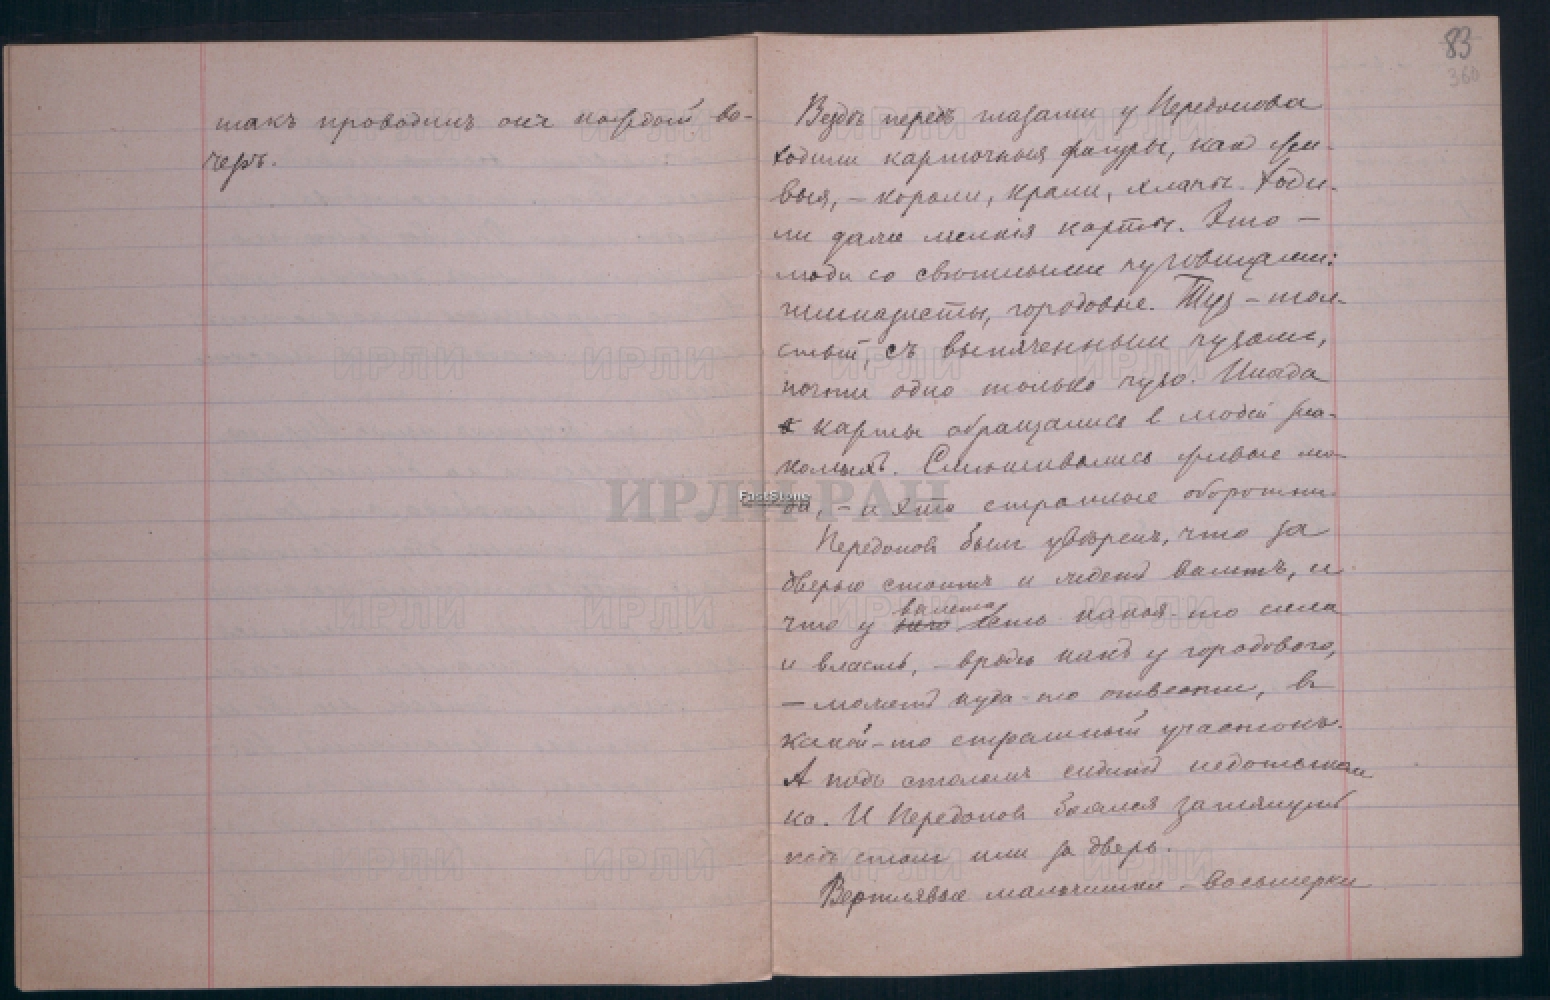 такъ проводилъ онъ каждый ве-
черъ.
83
360
Вездѣ передъ глазами у Передонова
ходили карточныя фигуры, какъ жи-
выя, – короли, крали, хлапы. Ходи-
ли даже мелкія карты. Это –
люди со свѣтлыми пуговицами:
гимназисты, городовые. Тузъ – тол-
стый, съ выпяченнымъ пузомъ,
почти одно только пузо. Иногда
карты обращались в людей зна-
комыхъ. Смѣшивались живые лю-
ди, – и это странные оборотни.
Передоновъ былъ увѣренъ, что за
дверью стоитъ и ждетъ валетъ, и
что у него валета есть какая-то сила
и власть, – вродѣ какъ у городового,
– можетъ куда-то отвести, въ
какой-то страшный участокъ.
А подъ столомъ сидитъ недотыком
ка. И Передоновъ боялся заглянуть
подъ столъ или за дверь.
Вертлявые мальчишки – восьмерки
ИРЛИ РАН
ИРЛИ
FastStone